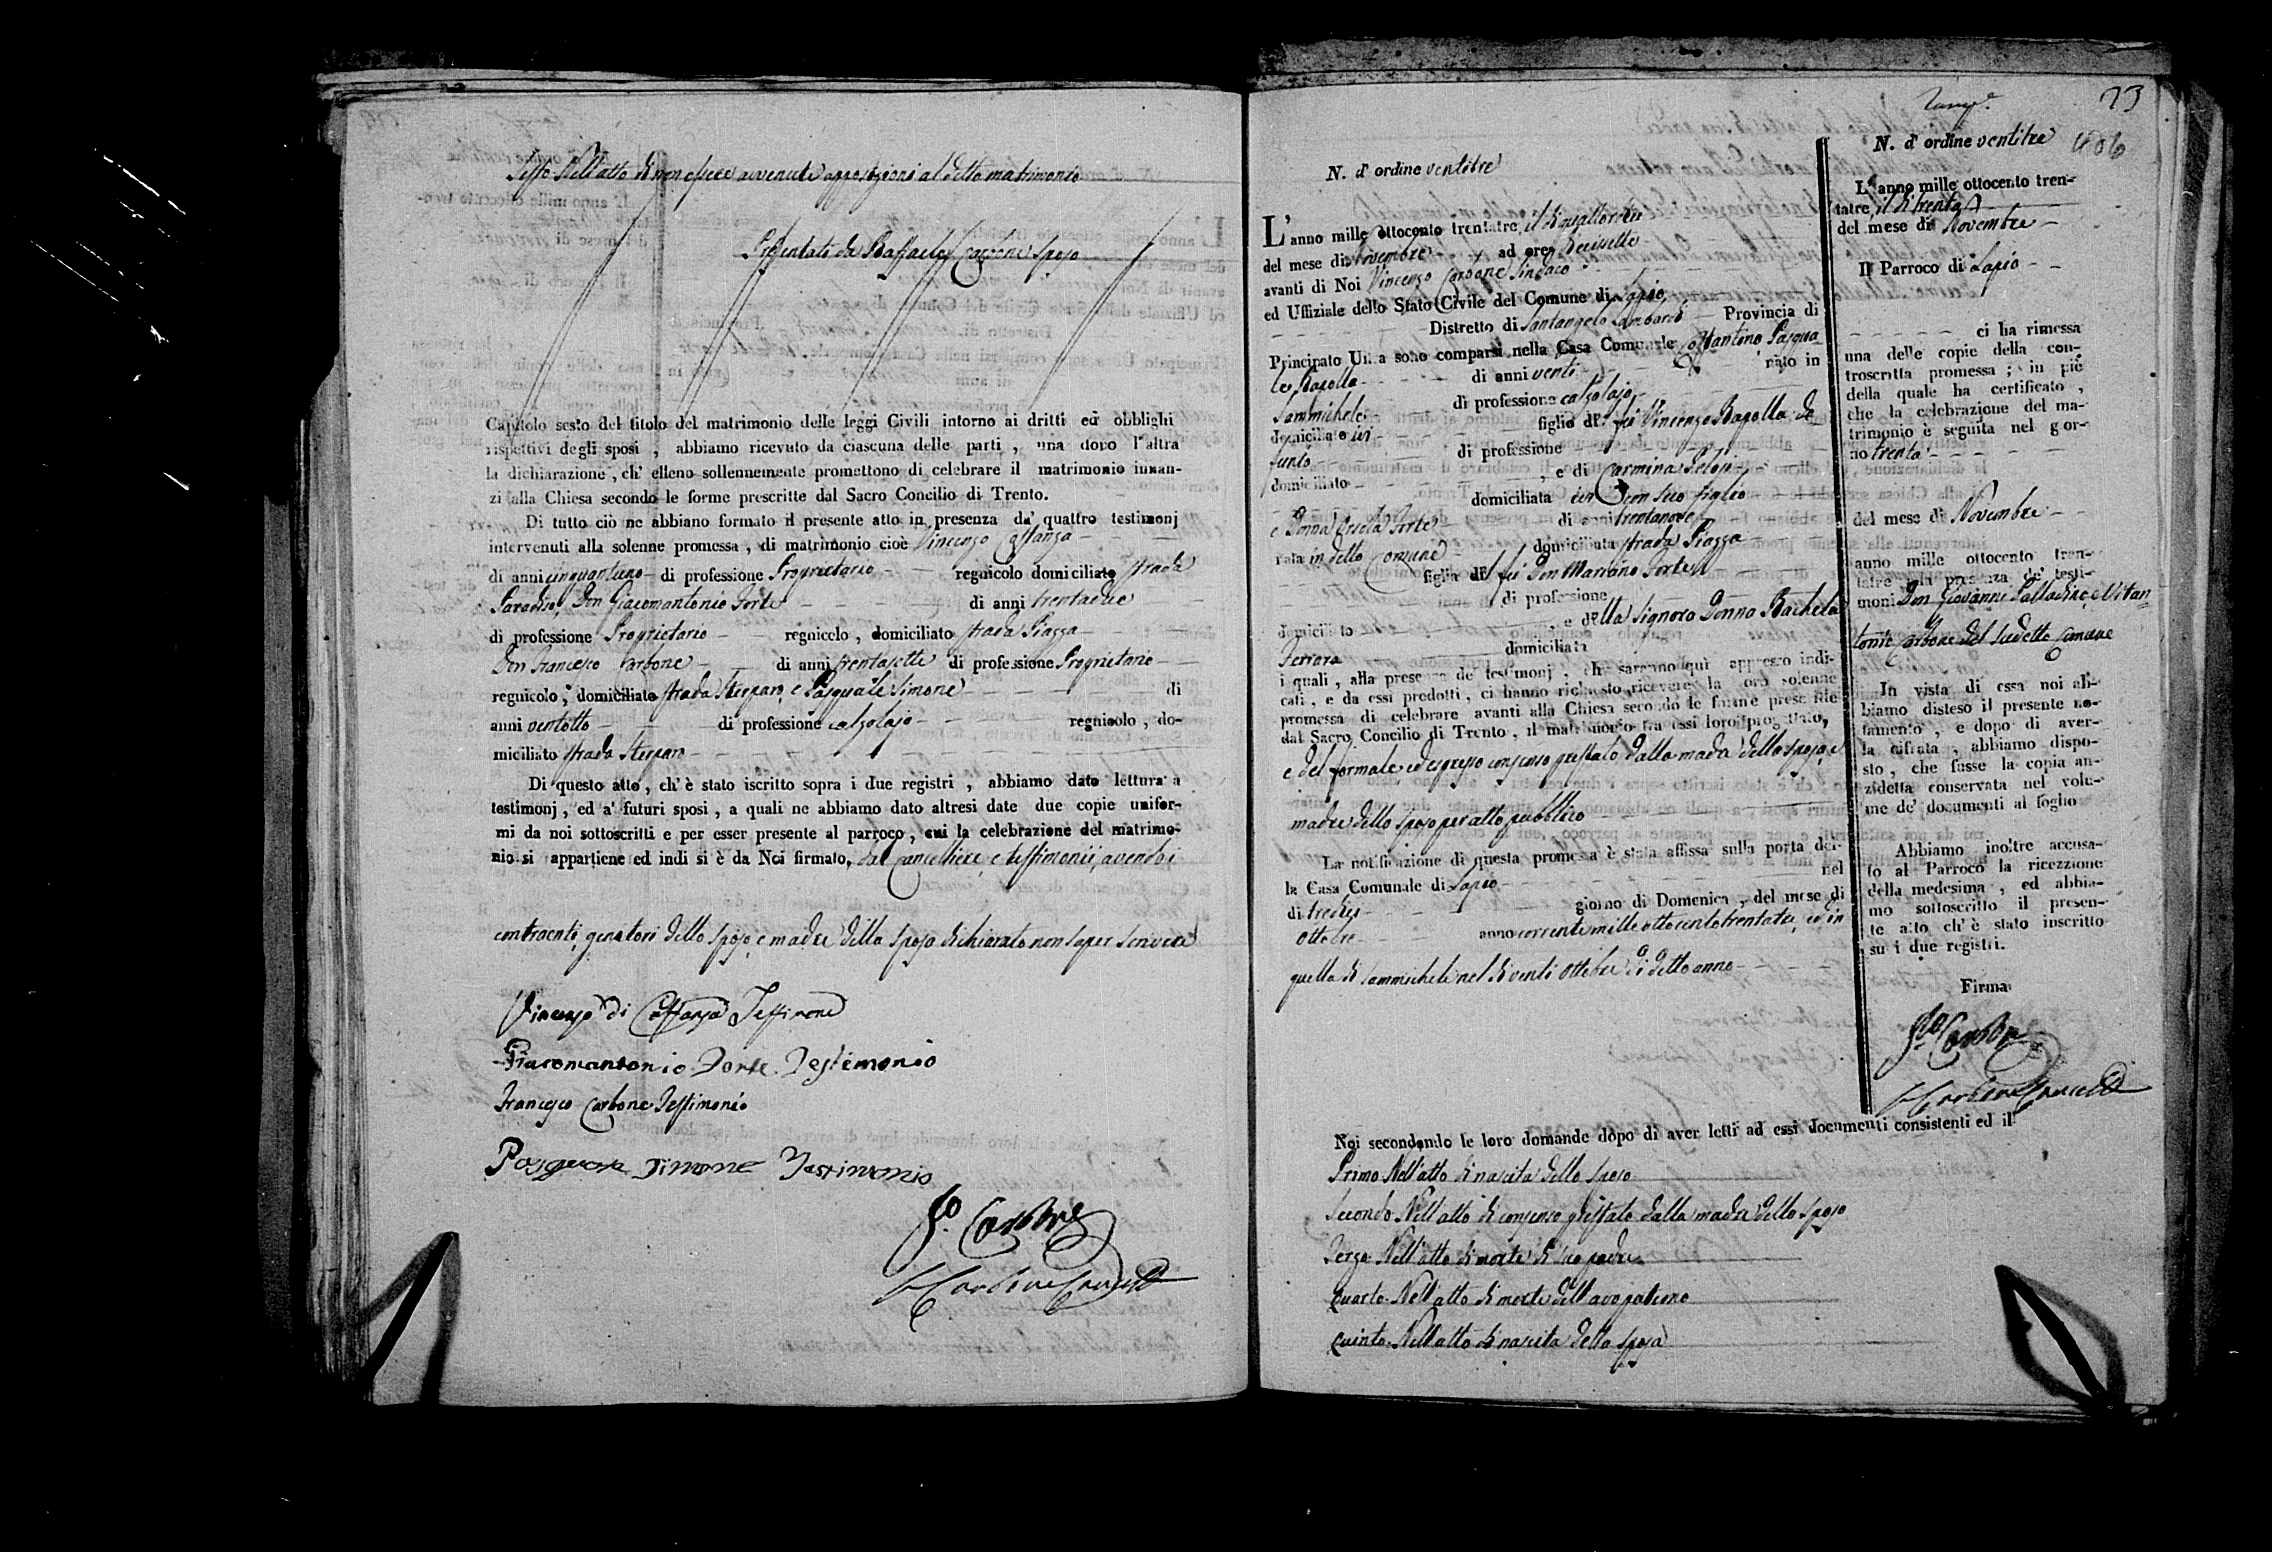 Sesto Nell'atto di non essere avvenute opposizioni al detto matrimonio
Presentato da Raffaele Carbone sposo
Capitolo sesto del titolo del matrimonio delle leggi Civili intorno ai dritti ed obblighi
rispettivi degli sposi, abbiamo ricevuto da ciascuna delle parti, una dopo l'altra
la dichiarazione, ch' elleno sollennemente promettono di celebrare il matrimonio innan-
zi alla Chiesa secondo le forme prescritte dal Sacro Concilio di Trento.
Di tutto ciò ne abbiano formato il presente atto in presenza da' quattro testimonj
intervenuti alla solenne promessa, di matrimonio cioè Vincenzo
di anni cinquantuno di professione Proprietario regnicolo domiciliato strada
Paradiso, Don Giacomantonio Forte di anni trentadue
di professione Proprietario regnicolo, domiciliato strada Piazza
Don Francesco Carbone di anni trentasette di professione Proprietario
regnicolo, domiciliato strada e Pasquale Simone di
anni ventotto di professione calzolajo regnicolo, do-
miciliato strada
Di questo atto, ch'è stato iscritto sopra i due registri, abbiamo dato lettura a
testimonj, ed a' futuri sposi, a quali ne abbiamo dato altresi date due copie unifor-
mi da noi sottoscritti e per esser presente al parroco, cui la celebrazione del matrimo-
nio si appartiene ed indi si è da Noi firmato, dal Cancelliere, e testimonii, avendo i
contraenti, genitori dello sposo, e madre della sposa dichiarato non saper scrivere
Vincenzo di Testimone
Giacomantonio Forte Testimonio
Francesco Carbone Testimonio
Pasquale Simone Testimonio
Carbone
Carbone
23
N. d' ordine ventitre
L'anno mille ottocento trentatre, il di quattordici
del mese di Novembre ad ore diecisette
avanti di Noi Vincenzo Carbone Sindaco
ed Uffiziale dello Stato Civile del Comune di Lapio
Distretto di Santangelo Lombardi Provincia di
Principato Ultra sono comparsi nella Casa Comunale Pasqua
le Rapolla di anni venti nato in
Sammichele di professione calzolajo
domiciliato ivi figlio di fu Vincenzo Rapolla de
funto di professione
domiciliato, e di Carmina
domiciliata ivi con suo figlio
e Donna Forte di anni trentanove
nata in detto Comune domiciliata strada Piazza
figlia di fu Don Mariano Forte
di professione
domiciliato, e della Signora Donna Rachela
Ferrara domiciliata
i quali, alla presenza de' testimonj, che saranno quì appresso indi-
cati, e da essi prodotti, ci hanno richiesto ricevere la loro solenne
promessa di celebrare avanti alla Chiesa secondo le forme prescritte
dal Sacro Concilio di Trento, il matrimonio tra essi loro progettato,
e del formale ed espresso consenso prestato dalla madre dello sposo, e
madre dello sposo per atto pubblico
La notificazione di questa promessa è stata affissa sulla porta del-
la Casa Comunale di Lapio nel
di tredici giorno di Domenica, del mese di
Ottobre anno corrente mille ottocento trentatre, ed in
quella di Sammichele nel di venti Ottobre di detto anno
Noi secondando le loro domande dopo di aver letti ad essi documenti consistenti ed il
Primo Nell'atto di nascita dello sposo
Secondo Nell'atto di consenso prestato dalla madre dello sposo
Terzo Nell'atto di morte di suo padre
Quarto Nell'atto di morte dell'avo paterno
Quinto Nell'atto di nascita della sposa
N. d' ordine ventitre
L'anno mille ottocento tren-
tatre, il di trenta
del mese di Novembre
Il Parroco di Lapio
ci ha rimessa
una delle copie della con-
troscritta promessa; in piè
della quale ha certificato,
che la celebrazione del ma-
trimonio è seguita nel gior-
no trenta
del mese di Novembre
anno mille ottocento tren-
tatre alla presenza de' testi-
moni Don Giovanni Palladino, e Vitan-
tonio Carbone del sudetto Comune
In vista di essa noi ab-
biamo disteso il presente no-
tamento, e dopo di aver-
la cifrata, abbiamo dispo-
sto, che fusse la copia an-
zidetta conservata nel volu-
me de' documenti al foglio
Abbiamo inoltre accusa-
to al Parroco la ricezzione
della medesima, ed abbia-
mo sottoscritto il presen-
te atto ch'è stato inscritto
su i due registri.
Firma
Carbone
Carbone